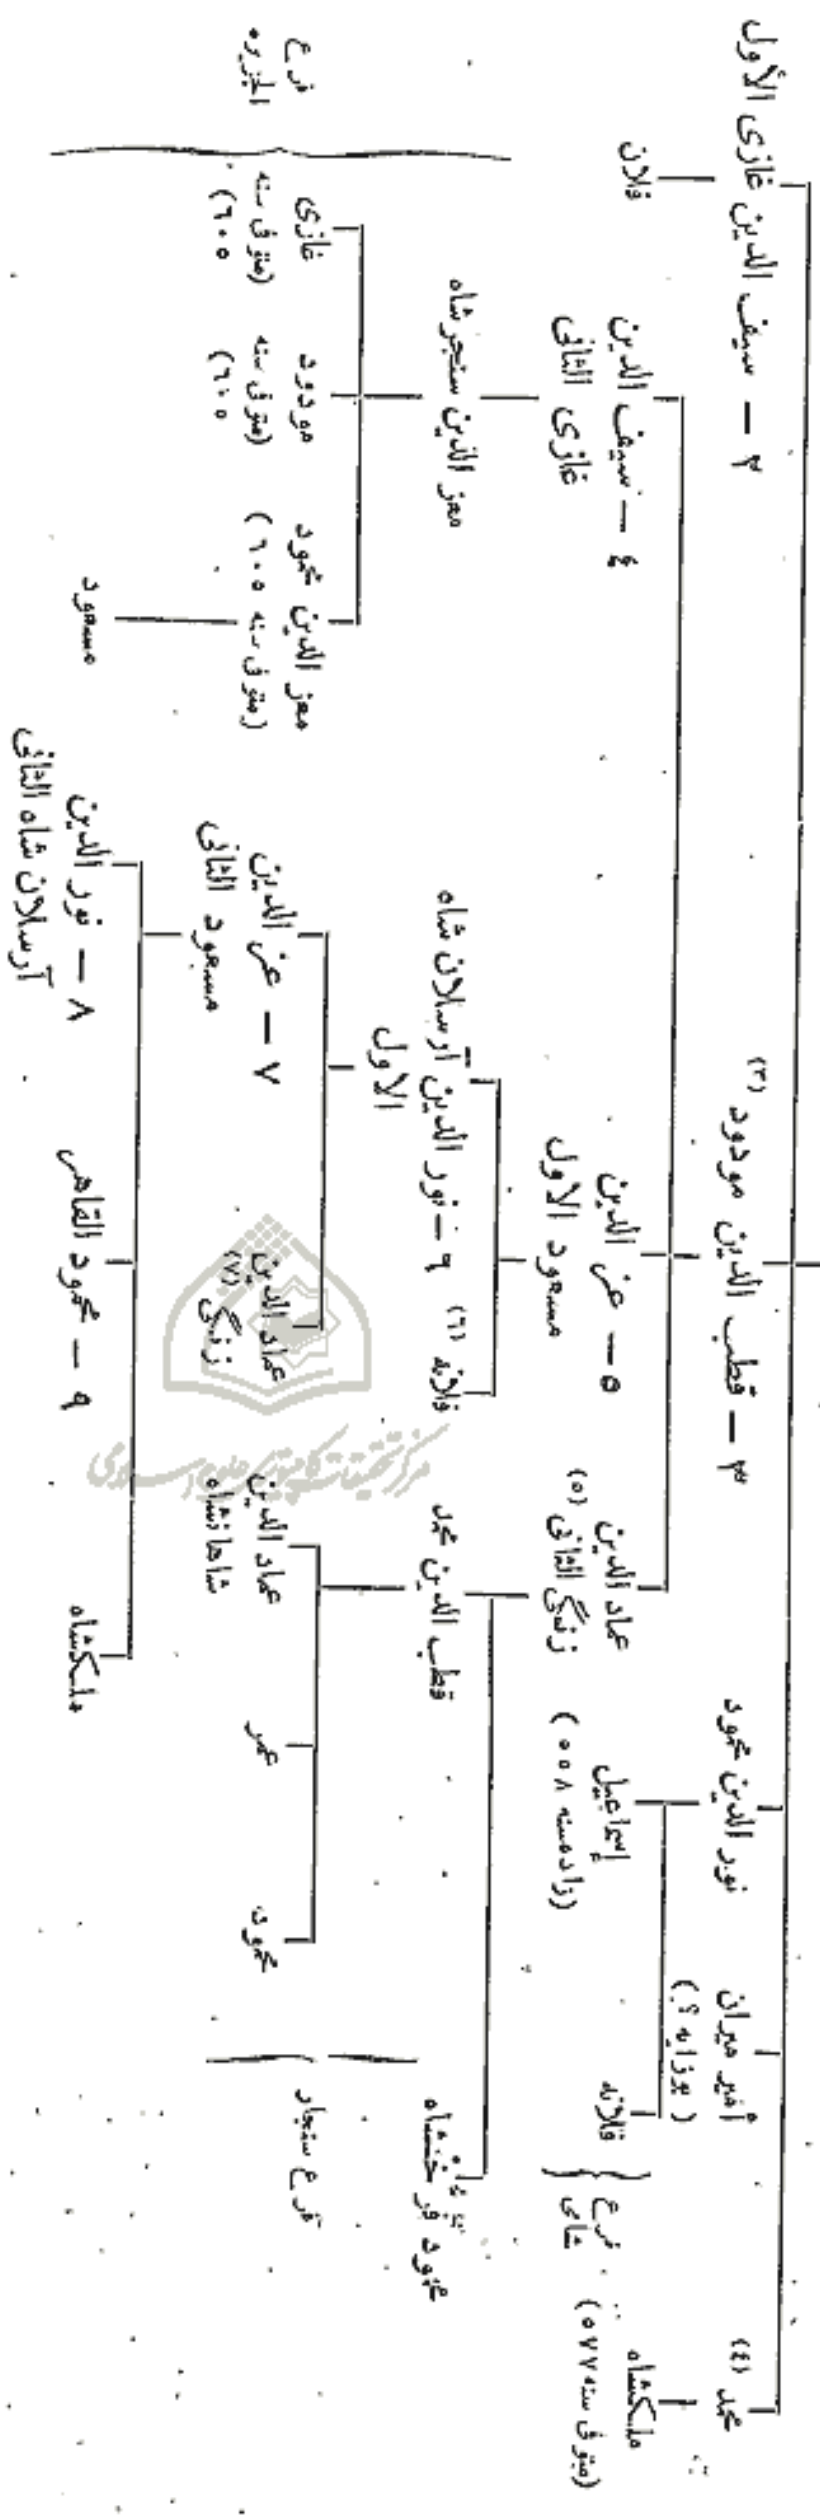 ٢ — سيف الدين غازى الأول
(٣) ٣ — قطب الدين مودود
نور الدين محمود
أمير ميران
(بوزابه؟)
محمد (٤)
فلان
٤ — سيف الدين
غازى الثانى
٥ — عز الدين
مسعود الاول
عماد الدين
زنگى الثانى (٥)
إسماعيل
(زاد سنه ٥٥٨)
فلانه
فرع
شامى
ملكشاه
(متوفى سنه ٥٧٧)
معز الدين سنجر شاه
٦ — نور الدين آرسلان شاه
الاول
فلانه (٦)
قطب الدين محمد
محمود فرخشاه
غازى
(متوفى سنه
٦٠٥)
مودود
(متوفى سنه
٦٠٥)
معز الدين محمود
(متوفى سنه ٦٠٥)
فرع
الجزيره
٧ — عز الدين
مسعود الثانى
عماد الدين
زنگى (٧)
عماد الدين
شاهانشاه
عمر
محمود
فرع سنجار
مسعود
٨ — نور الدين
آرسلان شاه الثانى
٩ — محمود القاهر
ملكشاه